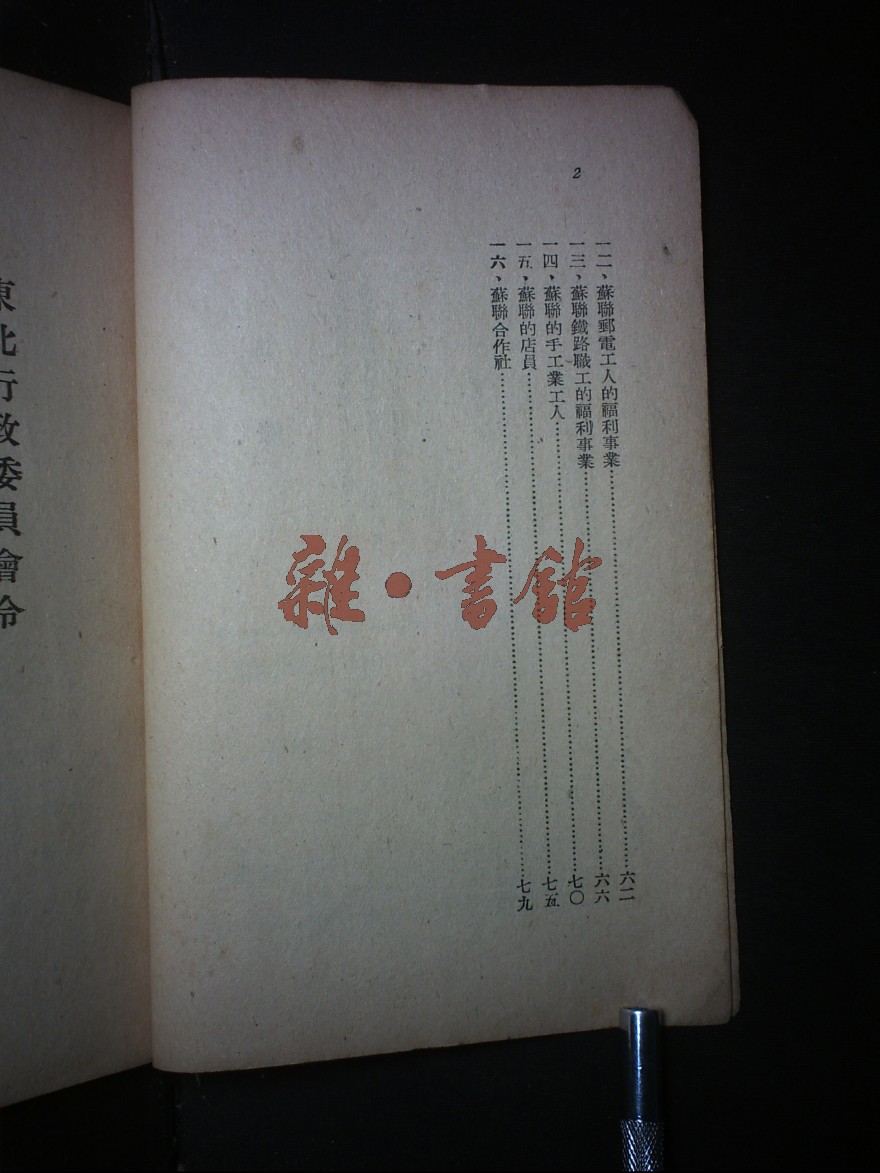 2
一二、蘇聯郵電工人的福利事業……六二
一三、蘇聯鐵路職工的福利事業……六六
一四、蘇聯的手工業工人……七〇
一五、蘇聯的店員……七五
一六、蘇聯合作社……七九
東北行政委員會令
雜•書館